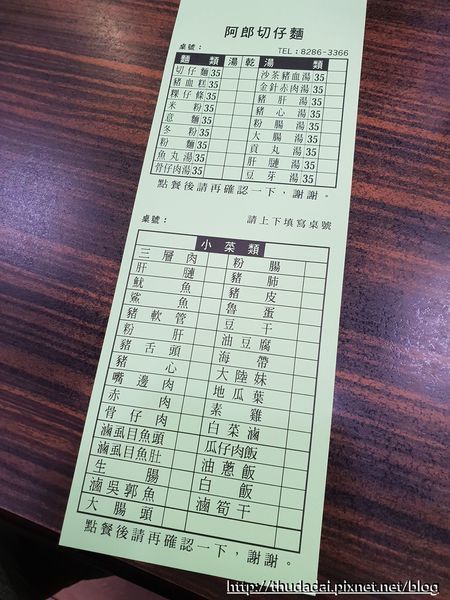 阿郎切仔麵
桌號： TEL：8286-3366
麵類 湯 乾 湯類
切仔麵 35 沙茶豬血湯 35
豬血糕 35 金針赤肉湯 35
粿仔條 35 豬肝湯 35
米粉 35 豬心湯 35
意麵 35 粉腸湯 35
冬粉 35 大腸湯 35
粉麵 35 貢丸湯 35
魚丸湯 35 肝腱湯 35
骨仔肉湯 35 豆芽湯 35
點餐後請再確認一下，謝謝。
桌號： 請上下填寫桌號
小菜類
三層肉 粉腸
肝腱 豬肺
魷魚 豬皮
鯊魚 魯蛋
豬軟管 豆干
粉肝 油豆腐
豬舌頭 海帶
豬心 大陸妹
嘴邊肉 地瓜葉
赤肉 素雞
骨仔肉 白菜滷
滷虱目魚頭 瓜仔肉飯
滷虱目魚肚 油蔥飯
生腸 白飯
滷吳郭魚 滷筍干
大腸頭
點餐後請再確認一下，謝謝。
http://thudadai.pixnet.net/blog